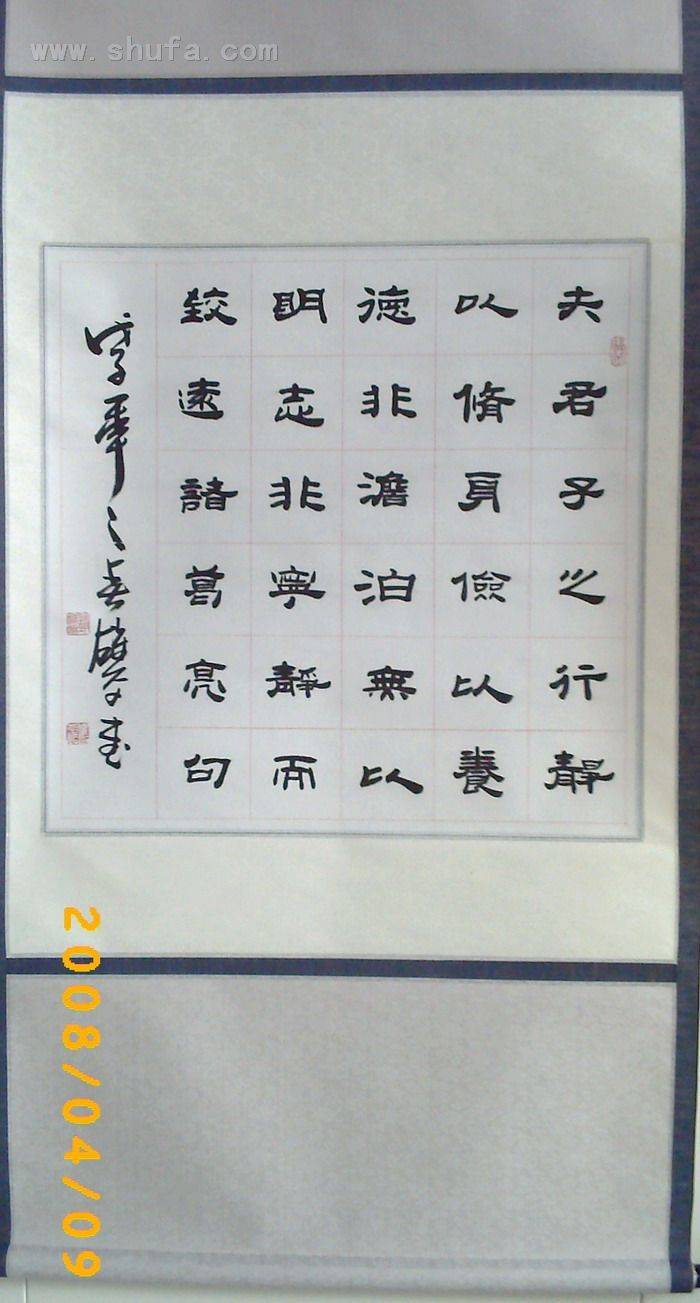 www.shufa.com
夫君子之行靜
以脩身儉以養
德非澹泊無以
明志非寧靜而
致遠諸葛亮句
2008/04/09